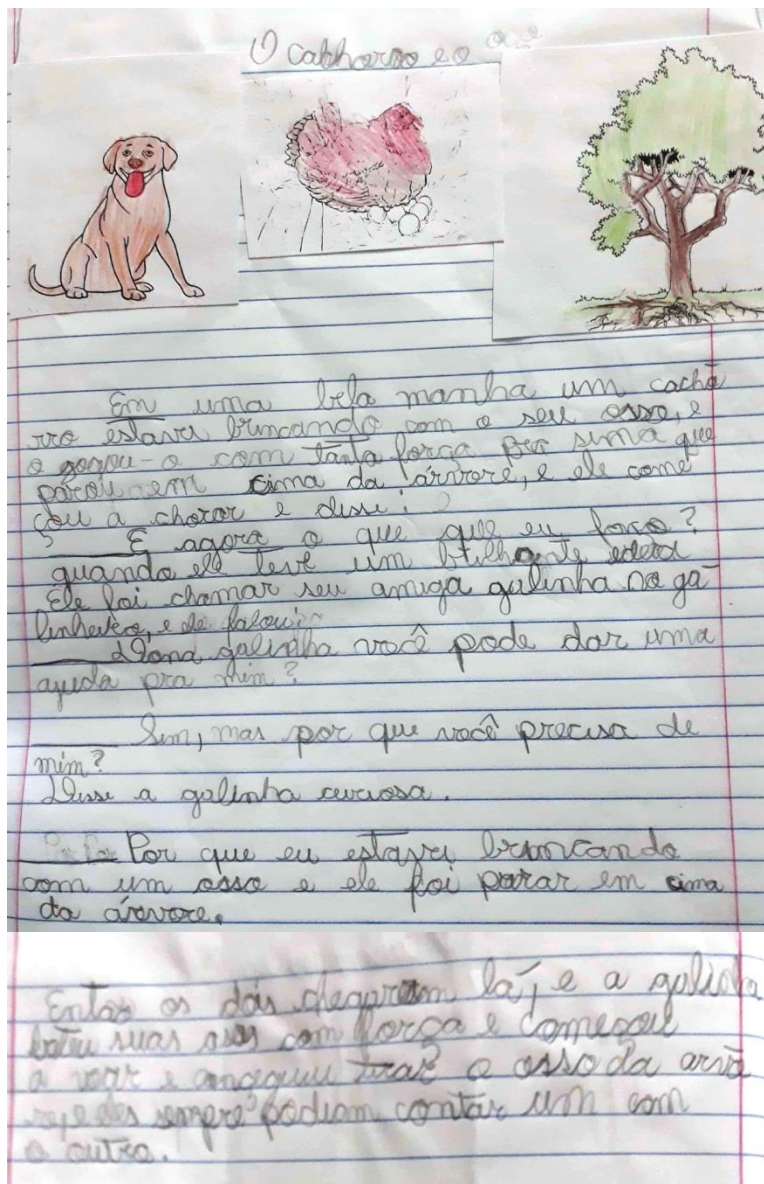 O cachorro e o
Em uma bela manha um cacho
rro estava brincando com o seu osso, e
o gogou-o com tanta força pra sima que
parou em cima da árvore, e ele come
çou a chorar e disse:
____ E agora o que que eu faço?
quando ele teve um brilhante edeia
Ele foi chamar seu amiga galinha no ga
linheiro, e ele falou:
____ Dona galinha você pode dar uma
ajuda pra mim?
____ Sim, mas por que você precisa de
mim?
Disse a galinha curiosa.
____ Por que eu estava brincando
com um osso e ele foi parar em cima
da árvore.
Entao os dois chegaram lá, e a galinha
bateu suas asas com força e começou
a voar e conceguiu tirar o osso da arvo
re, e eles sempre podiam contar um com
o outro.